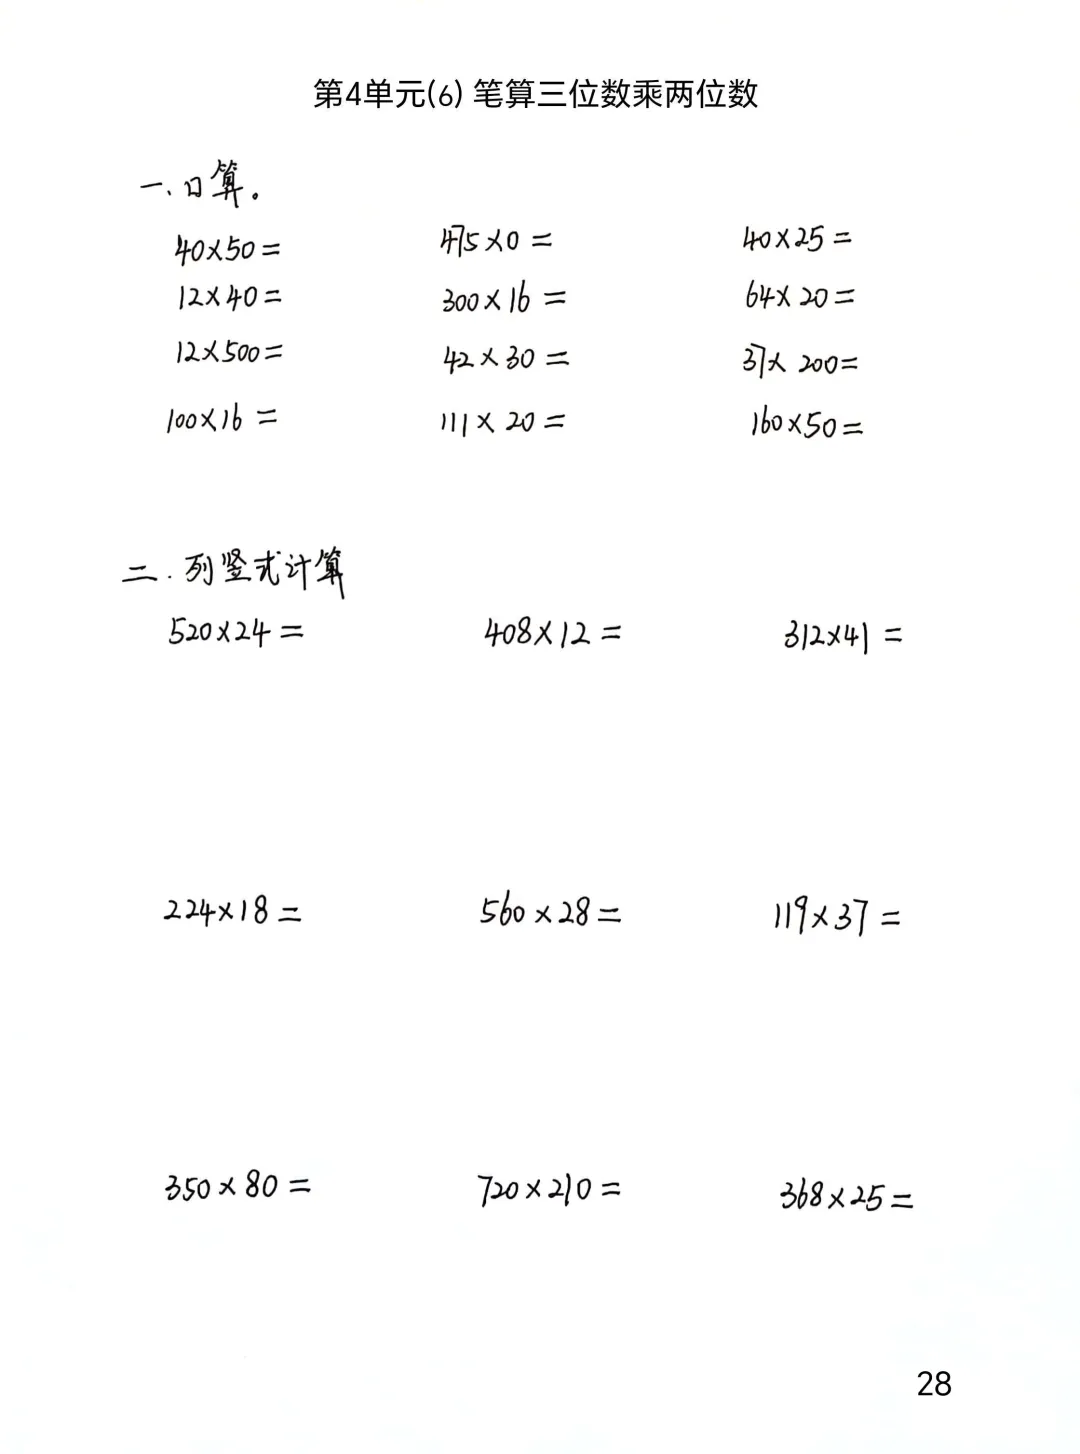 第4单元(6) 笔算三位数乘两位数
一、口算。
40×50= 475×0= 40×25=
12×40= 300×16= 64×20=
12×500= 42×30= 37×200=
100×16= 111×20= 160×50=
二.列竖式计算
520×24= 408×12= 312×41=
224×18= 560×28= 119×37=
350×80= 720×210= 368×25=
28